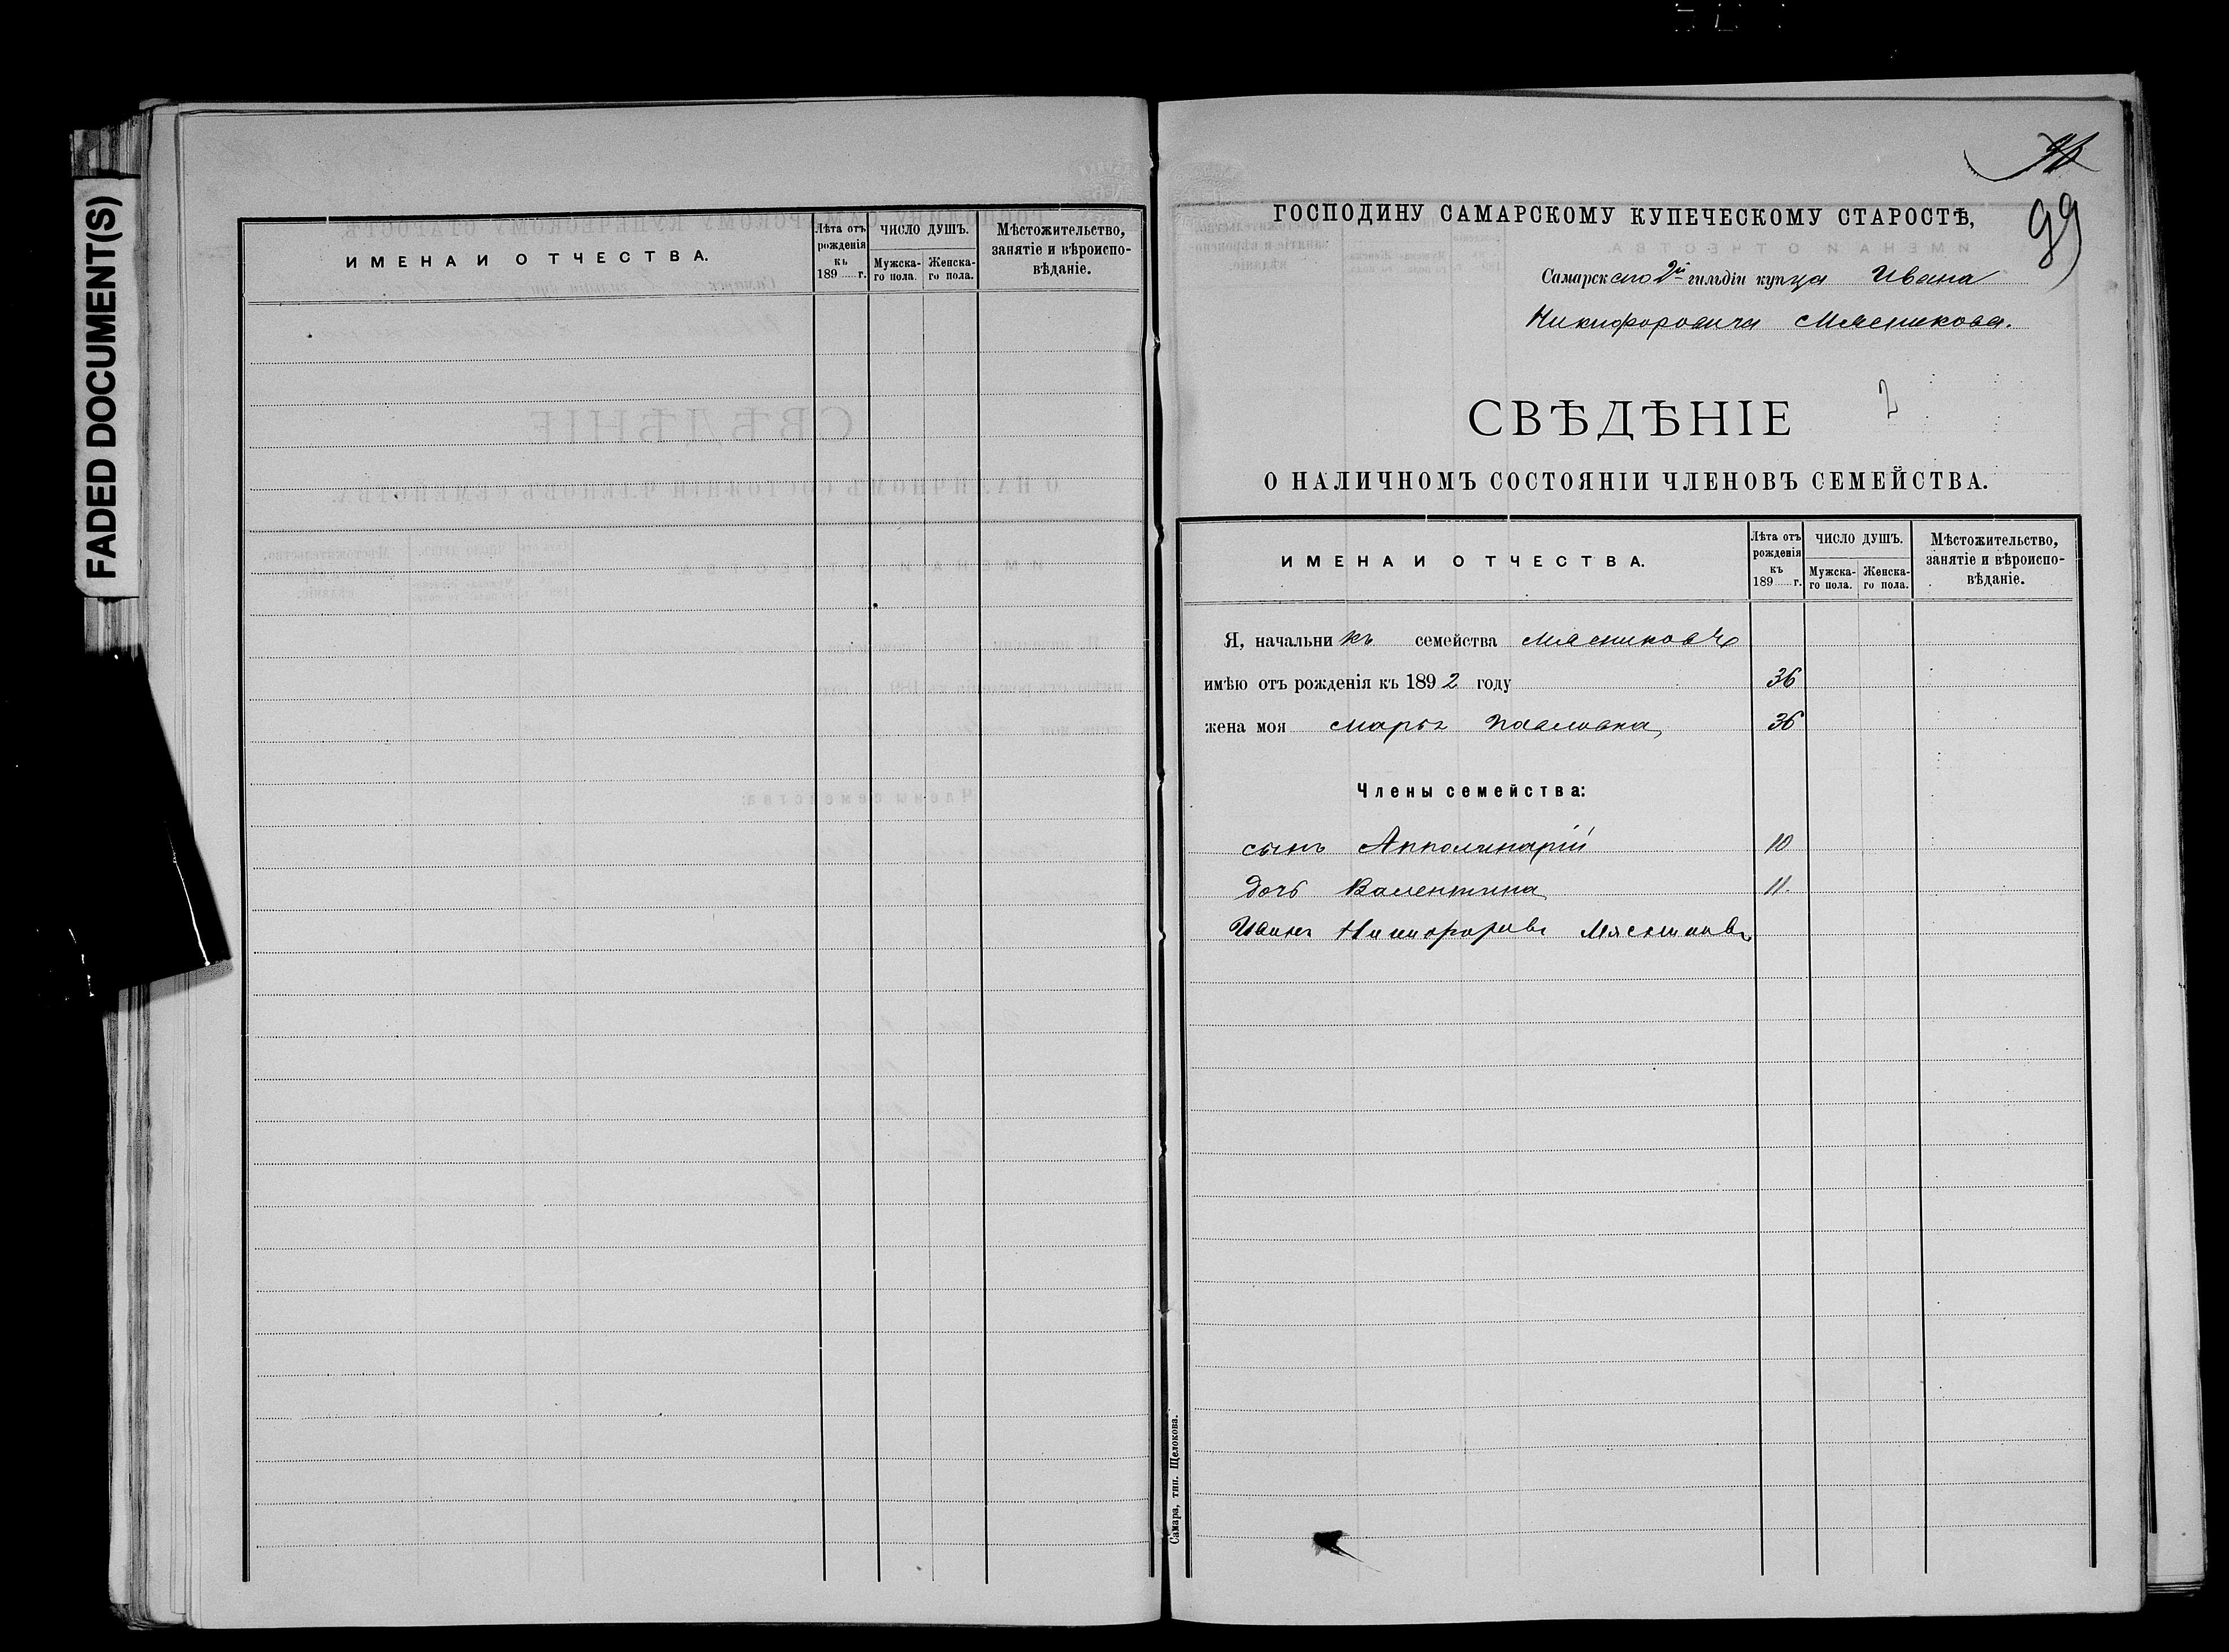 FADED DOCUMENT(S)
ИМЕНА И ОТЧЕСТВА.
Лѣта отъ рожденія къ 189 г.
ЧИСЛО ДУШЪ.
Мужска-го пола.
Женска-го пола.
Мѣстожительство, занятіе и вѣроиспо-вѣданіе.
99
ГОСПОДИНУ САМАРСКОМУ КУПЕЧЕСКОМУ СТАРОСТѢ,
Самарскаго 2й гильдіи купца Ивана
Никифоровича Мясникова.
2
СВѢДѢНІЕ
О НАЛИЧНОМЪ СОСТОЯНІИ ЧЛЕНОВЪ СЕМЕЙСТВА.
ИМЕНА И ОТЧЕСТВА.
Лѣта отъ рожденія къ 189 г.
ЧИСЛО ДУШЪ.
Мужска-го пола.
Женска-го пола.
Мѣстожительство, занятіе и вѣроиспо-вѣданіе.
Я, начальникъ семейства Мясниковъ
имѣю отъ рожденія къ 1892 году 36
жена моя Марья Павловна, 36
Члены семейства:
сынъ Апполинарій 10
дочь Валентина 11.
Иванъ Никифоровъ Мясниковъ
Самара, тип. Щелокова.